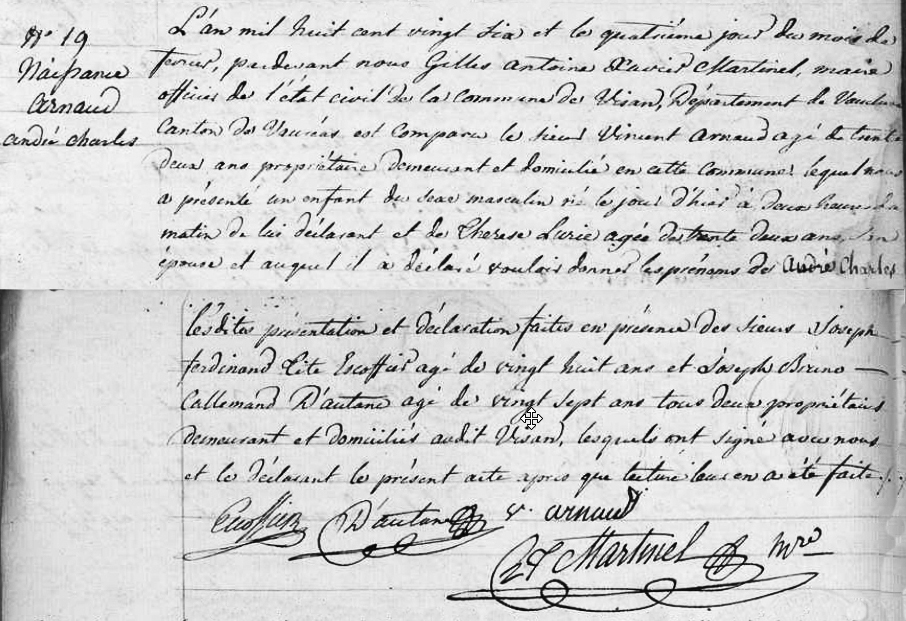 N.º 19
Naissance
Arnaud
andré charles
L'an mil huit cent vingt six et le quatrième jour du mois de
fevrier, pardevant nous Gilles Antoine Xavier Martinel, maire
officier de l'état civil de la commune de Visan, Département de Vaucluse
Canton de Vauréas est comparu le sieur Vincent Arnaud agé de trente
deux ans propriétaire demeurant et domicilié en cette commune lequel nous
a présenté un enfant du sexe masculin né le jour d'hier à deux heures du
matin de lui déclarant et de Therese Lurie agée de trente deux ans, son
épouse et auquel il a déclaré vouloir donner les prénoms de André Charles
lesdites présentation et déclaration faites en présence des sieurs Joseph
ferdinand Tite Escoffier agé de vingt huit ans et Joseph Bruno
Callemand D'autane agé de vingt sept ans tous deux propriétaires
demeurant et domiciliés audit Visan, lesquels ont signé avec nous
et le déclarant le présent acte apres que lecture leur en a été faite.
Escoffier D'autane v. arnaud
Martinel mre